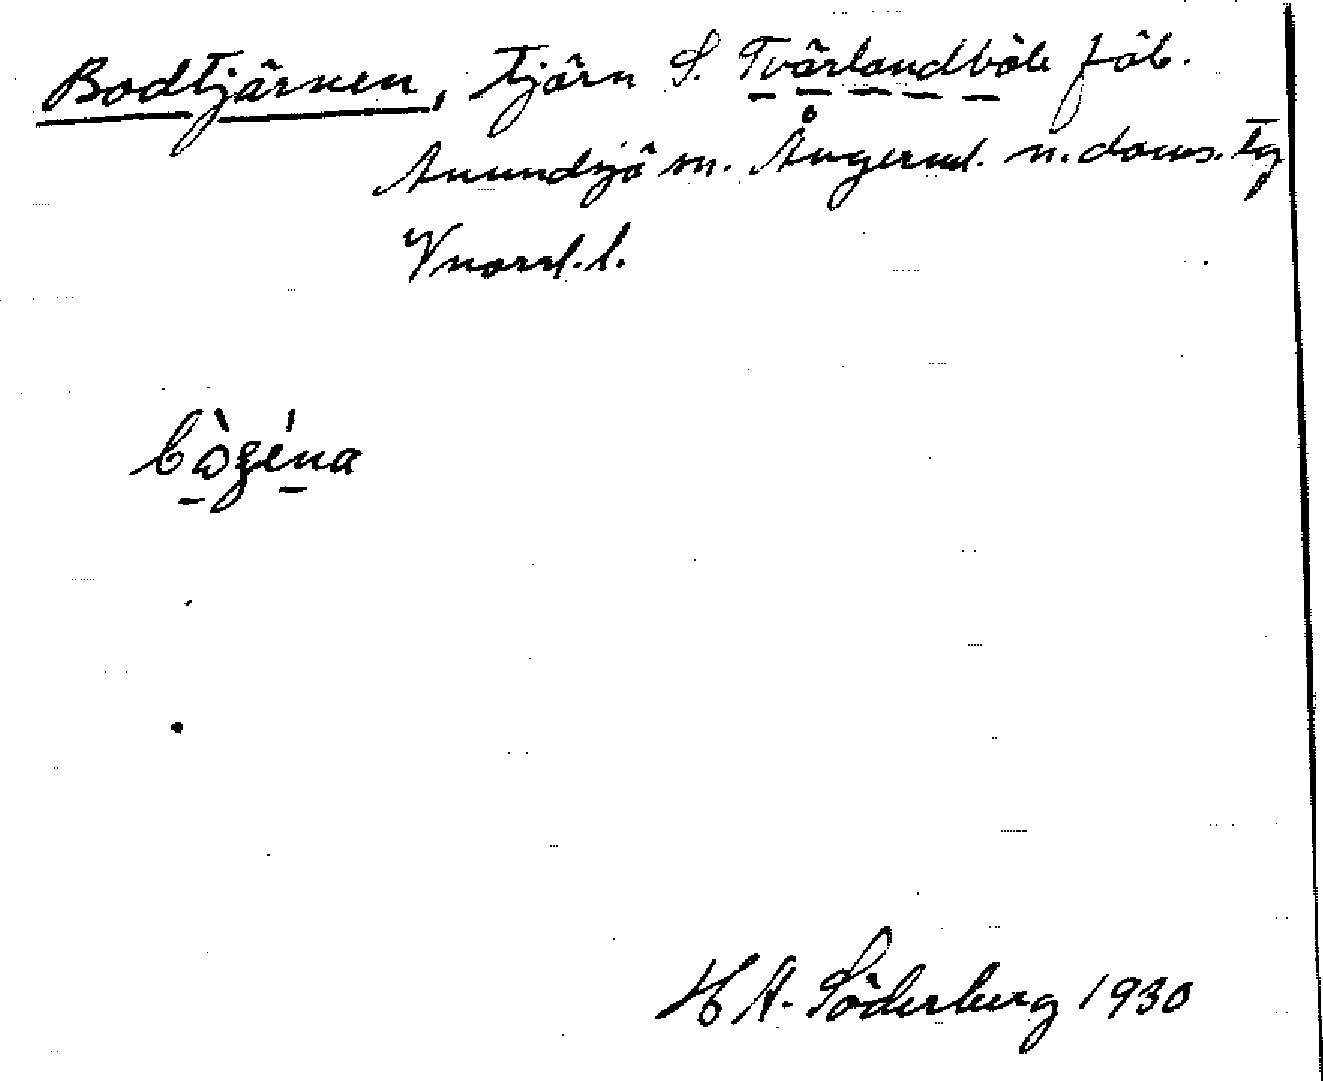 Bodtjärnen, tjärn S. Tvärlandböle fäb.
Anundsjö sn. Ångerml. n. doms. tg
Vnorrl. l.
H A. Söderberg 1930